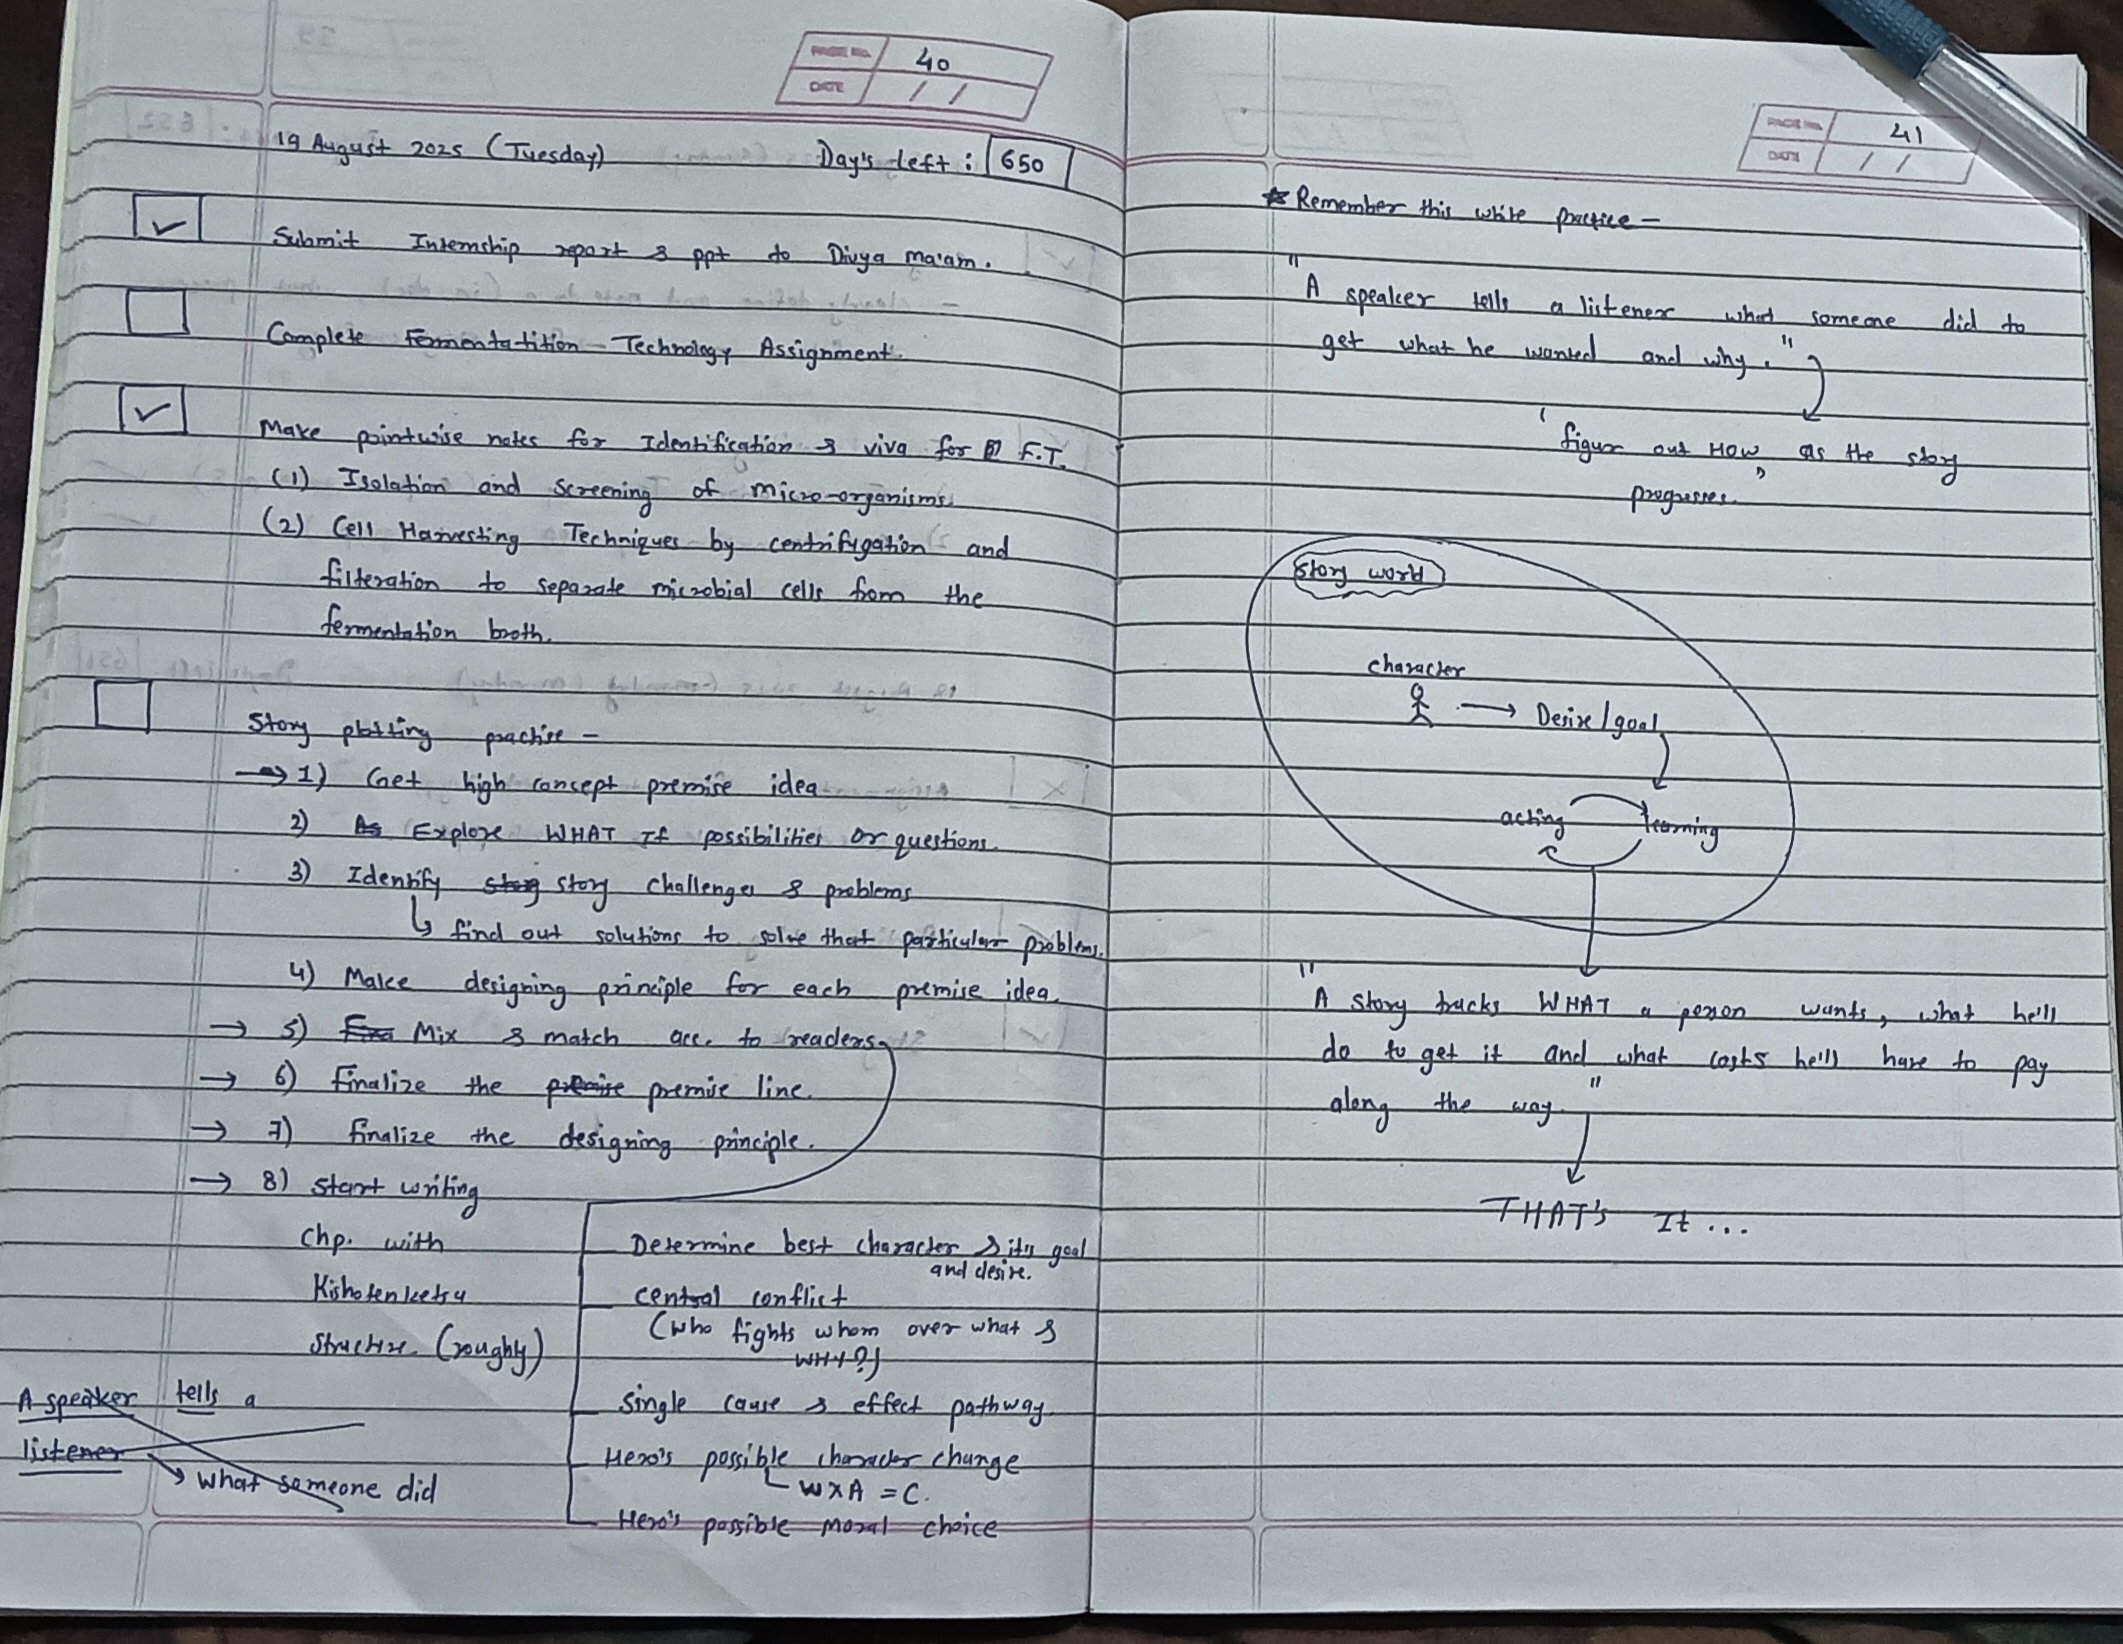 PAGE No. 40
DATE / /
19 August 2025 (Tuesday) Day's left : 650
Submit Internship report & ppt to Divya ma'am.
Complete Fermentatition Technology Assignment.
Make pointwise notes for Identification & viva for F.T.
(1) Isolation and screening of micro-organisms.
(2) Cell Harvesting Techniques by centrifugation and
filteration to separate microbial cells from the
fermentation broth.
Story plotting practise -
→ 1) Get high concept premise idea
2) Explore WHAT If possibilities or questions.
3) Identify story challenges & problems
↳ find out solutions to solve that particular problems.
4) Make designing principle for each premise idea.
→ 5) Mix & match acc. to readers.
→ 6) Finalize the premise line.
→ 7) finalize the designing principle.
→ 8) start writing
Chp. with
Kishotenketsu
Structure (roughly)
Determine best character & its goal
and desire.
central conflict
(who fights whom over what &
WHY?)
Single cause & effect pathway.
Hero's possible character change
↳ W x A = C.
Hero's possible moral choice
A speaker tells a
listener
→ what someone did
PAGE No. 41
DATE / /
* Remember this write practice -
"A speaker tells a listener what someone did to
get what he wanted and why."
'figur out HOW as the story
progresses."
Story world
character
→ Desire/goal
acting learning
"A story tracks WHAT a person wants, what he'll
do to get it and what costs he'll have to pay
along the way."
THAT's It ...